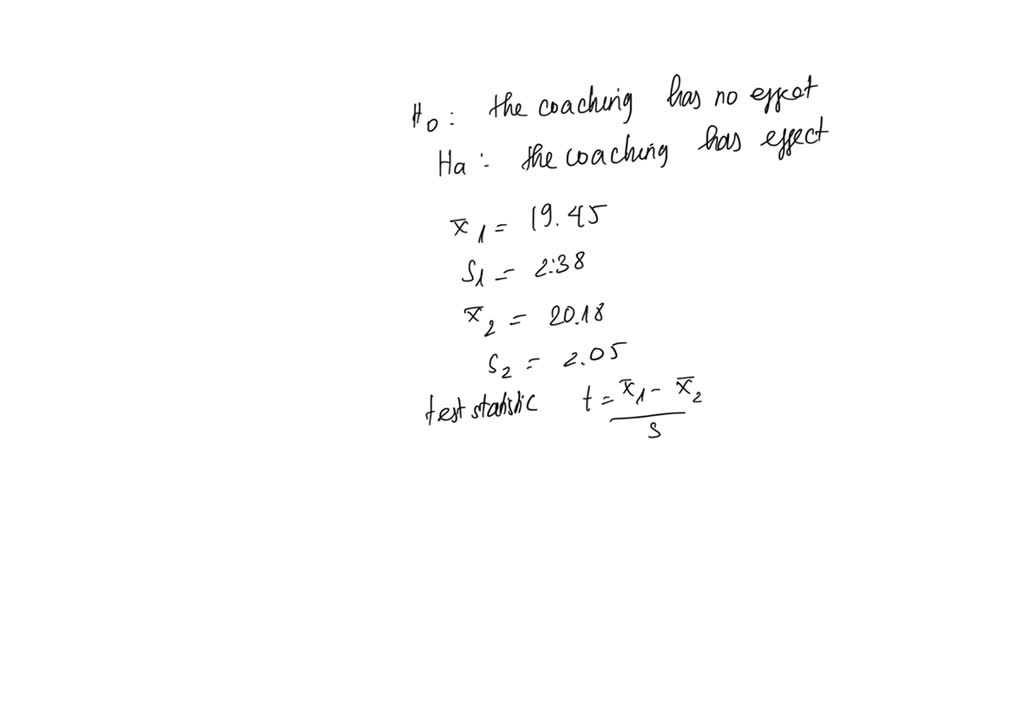 H0: the coaching has no effect
Ha: the coaching has effect
x̄1 = 19.45
S1 = 2.38
x̄2 = 20.18
S2 = 2.05
test statistic t = x̄1 - x̄2
S